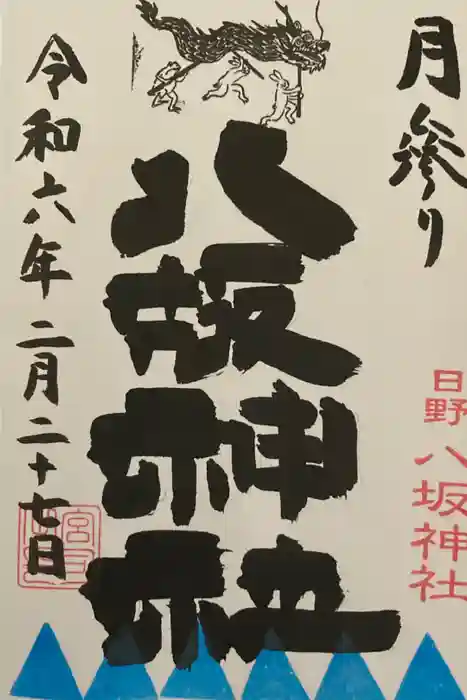 月参り
日野
八坂神社
八坂神社
令和六年二月二十七日